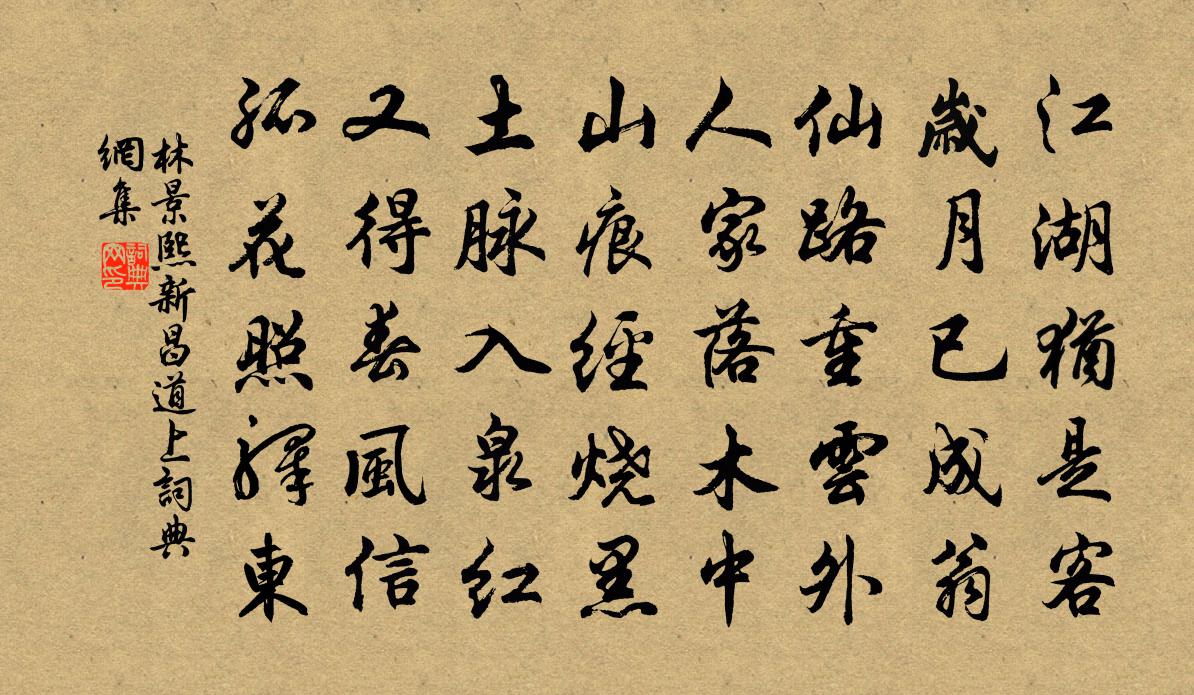 江湖猶是客
歲月已成翁
仙路重雲外
人家落木中
山痕經燒黑
土脉入泉红
又得春風信
孤花照驛東
林景熙新昌道上詞典
網集
詞典网印